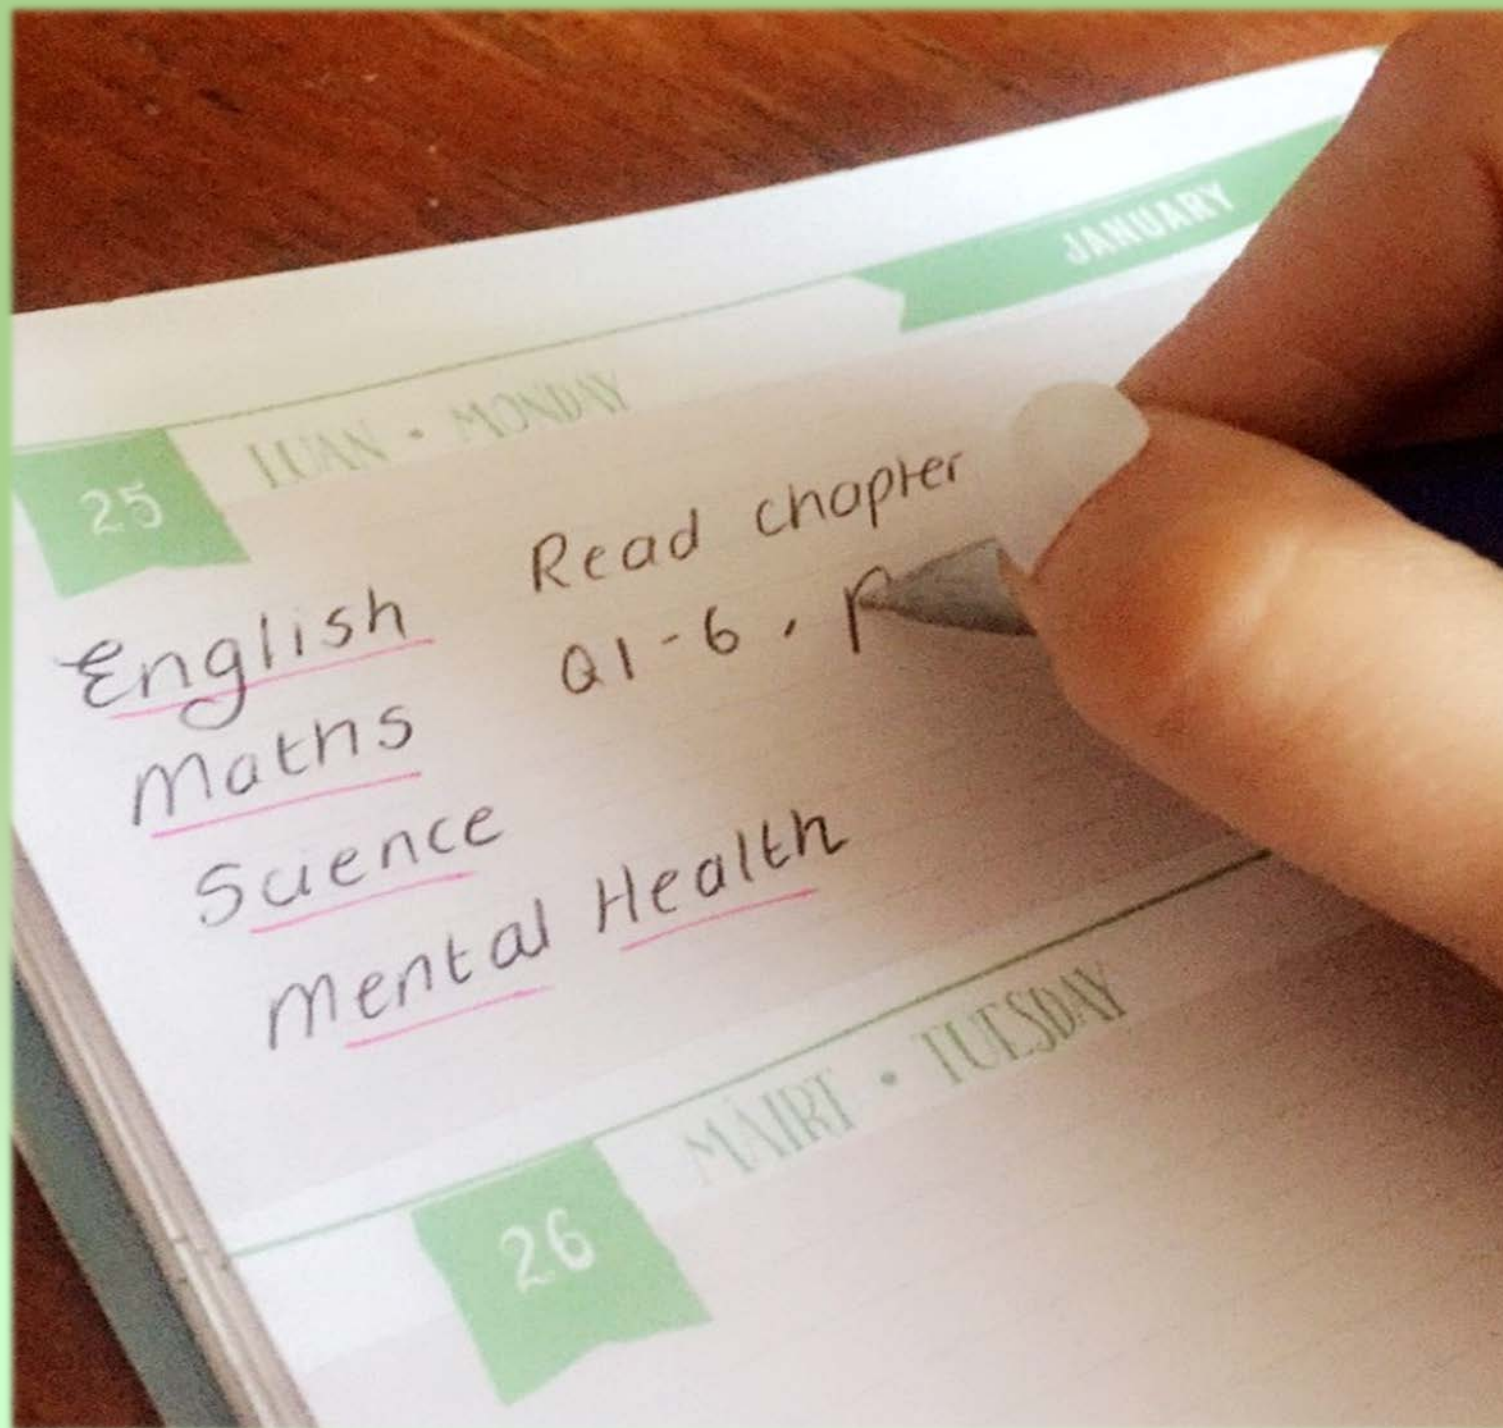 JANUARY
25 LUAN • MONDAY
English Read chapter
Maths Q1-6, p
Science
Mental Health
26 MÁIRT • TUESDAY